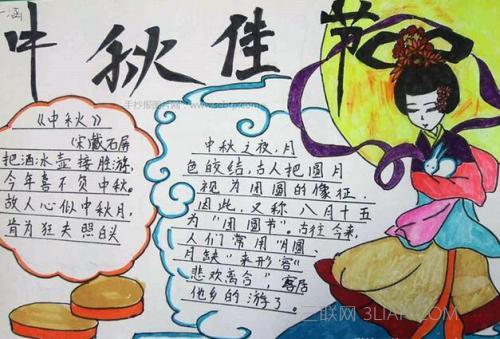 一涵
中秋佳节
《中秋》
宋戴石屏
把酒冰壶接胜游,
今年喜不负中秋。
故人心似中秋月,
肯为狂夫照白头
中秋之夜,月
色皎结,古人把圆月
视为团圆的像征.
因此,又称八月十五
为"团圆节"。古往今来,
人们常用"月圆
月缺"来形容"
悲欢离合",客居
他乡的游了。
三联网 3LIAN.COM